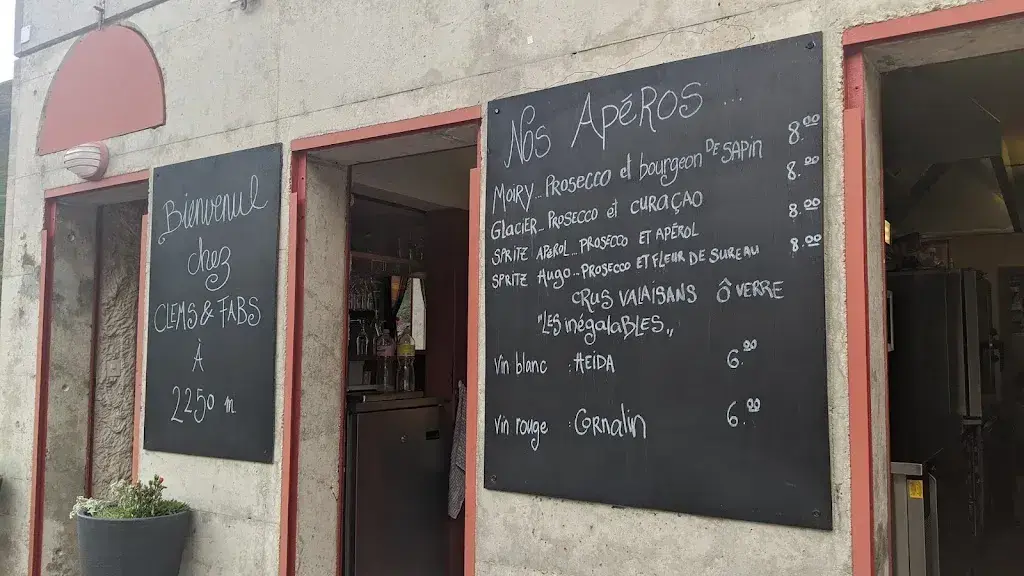 Bienvenue
chez
CLEMS & FABS
À
2250 m
Nos Apéros ...
MOIRY... PROSECCO et bourgeon DE SAPIN 8.00
GLACIER... PROSECCO et CURAÇAO 8.00
SPRITZ APÉROL... PROSECCO ET APÉROL 8.00
SPRITZ HUGO... PROSECCO ET FLEUR DE SUREAU 8.00
CRUS VALAISANS Ô VERRE
"LES inégalABLES"
vin blanc : HEIDA 6.00
vin rouge : Cornalin 6.00